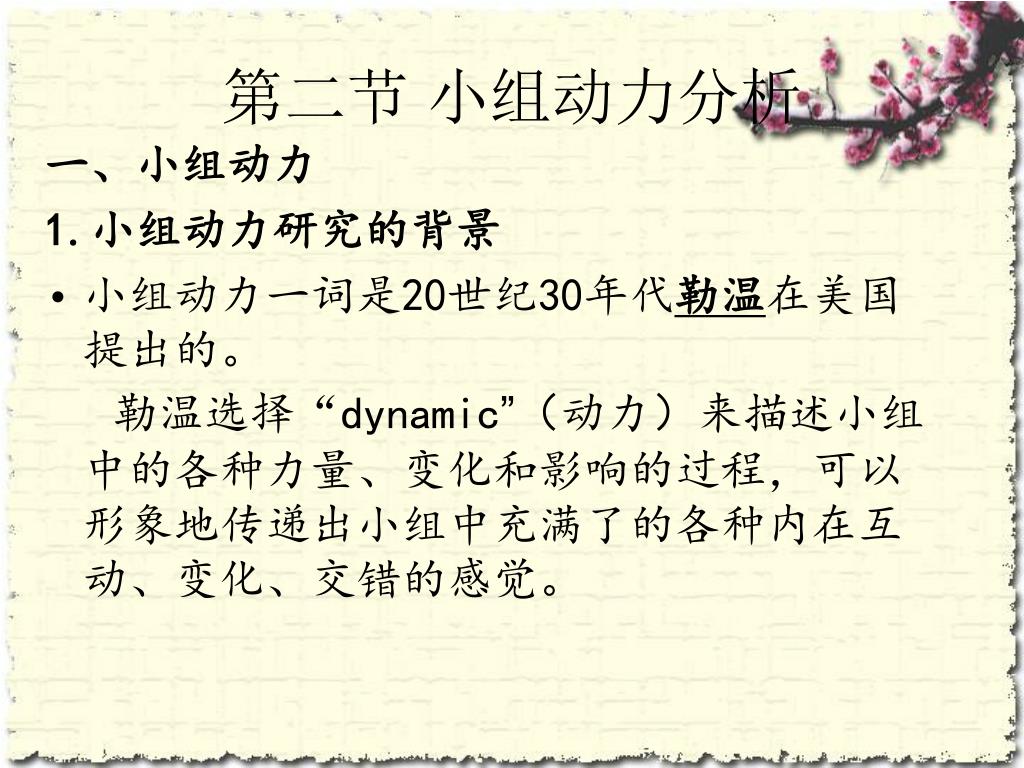 第二节 小组动力分析
一、小组动力
1.小组动力研究的背景
• 小组动力一词是20世纪30年代勒温在美国
提出的。
勒温选择“dynamic”（动力）来描述小组
中的各种力量、变化和影响的过程，可以
形象地传递出小组中充满了的各种内在互
动、变化、交错的感觉。